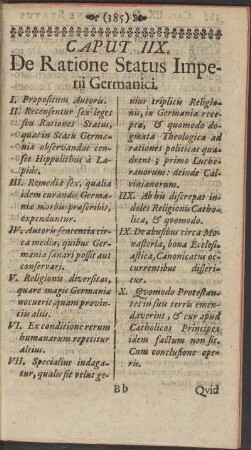 (385)
CAPUT IIX.
De Ratione Status Impe-
rii Germanici.
I. Propositum Autoris.
II. Recensentur sex leges
seu Rationes Status,
quas in Statu Germa-
niæ observandas cen-
set Hippolithus à La-
pide.
III. Remedia sex, qualia
idem curandis Germa-
niæ morbis præscribit,
expenduntur.
IV. Autoris sententia cir-
ca media, quibus Ger-
mania sanari possit aut
conservari.
V. Religionis diversitas,
quare magis Germaniæ
nocuerit, quam provin-
ciis aliis.
VI. Ex conditione rerum
humanarum repetitur
altius.
VII. Specialius indaga-
tur, qualis sit velut ge-
nius triplicis Religio-
nis, in Germania recep-
ptæ, & quomodo do-
gmata Theologica ad
rationes politicas qua-
drent; primo Luthe-
ranorum: deinde Cal-
vinianorum.
IIX. Ab his discrepat in-
doles Religionis Catho-
licæ, & quomodo.
IX. De abusibus circa Mo-
nasteria, bona Ecclesi-
astica, Canonicatus oc-
currentibus disseri-
tur.
X. Quomodo Protestan-
tes in suis terris emen-
daverint, & cur apud
Catholicos Principes
idem factum non sit.
Cum conclusione ope-
ris.
Bb
Qvid